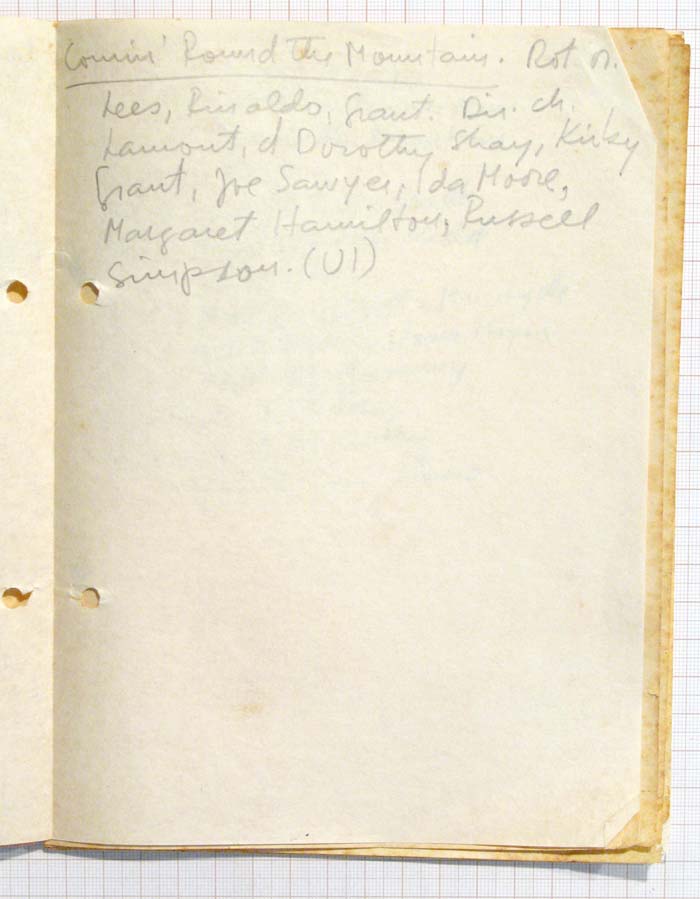 Comin' Round The Mountain. Rot. n.
Lees, Rinaldo, Grant. Dir. Ch.
Lamont, d Dorothy Shay, Kirby
Grant, Joe Sawyer, Ida Moore,
Margaret Hamilton, Russell
Simpson. (UI)